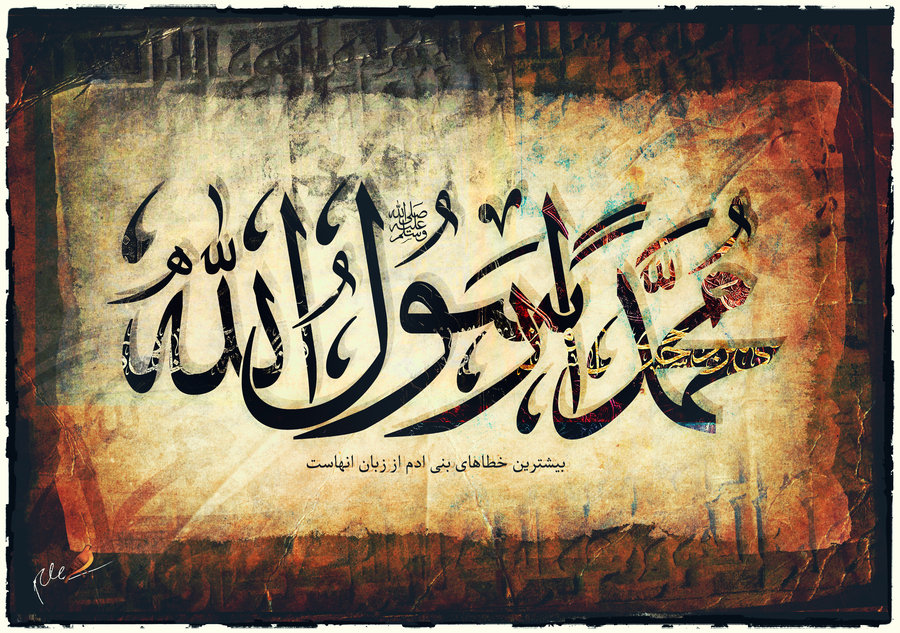 محمد يا رسول الله
صلى الله عليه وسلم
بیشترین خطاهای بنی ادم از زبان انهاست